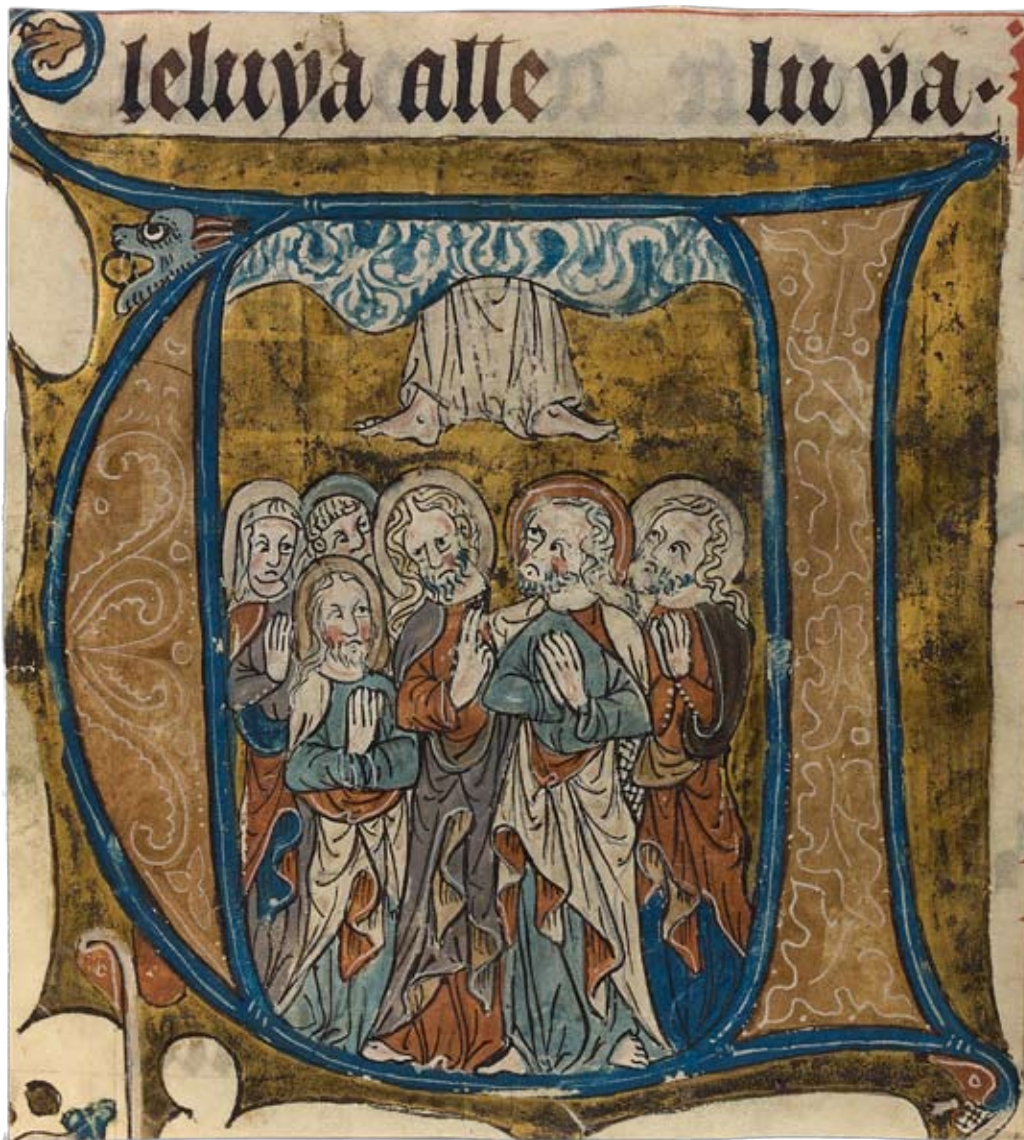 leluya alle lu ya.